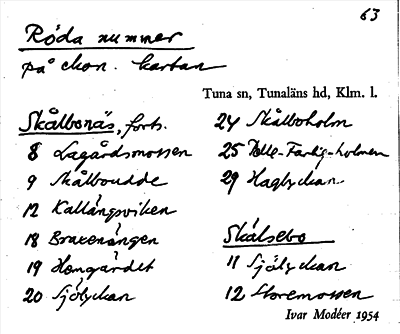 63
Röda nummer
på ekon. kartan
Tuna sn, Tunaläns hd, Klm. l.
Skålbonäs, forts.
8 Lagårdsmossen
9 Skålboudde
12 Kallängsviken
18 Brakenängen
19 Hemgärdet
20 Sjölyckan
24 Skålboholm
25 Pelle-Farlig-holmen
29 Haglyckan
Skälsebo
11 Sjölyckan
12 Storemossen
Ivar Modéer 1954